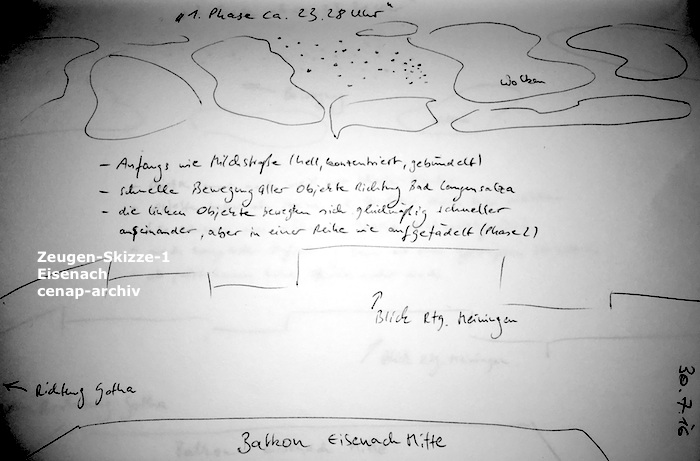 „1. Phase ca. 23.28 Uhr"
Wolken
- Anfangs wie Milchstraße (hell, konzentriert, gebündelt)
- schnelle Bewegung aller Objekte Richtung Bad Langensalza
- die linken Objekte bewegten sich gleichmäßig schneller
aufeinander, aber in einer Reihe wie aufgefädelt (Phase 2)
Zeugen-Skizze-1
Eisenach
cenap-archiv
↑
Blick Rtg. Meiningen
← Richtung Gotha
30.7.16
Balkon Eisenach Mitte